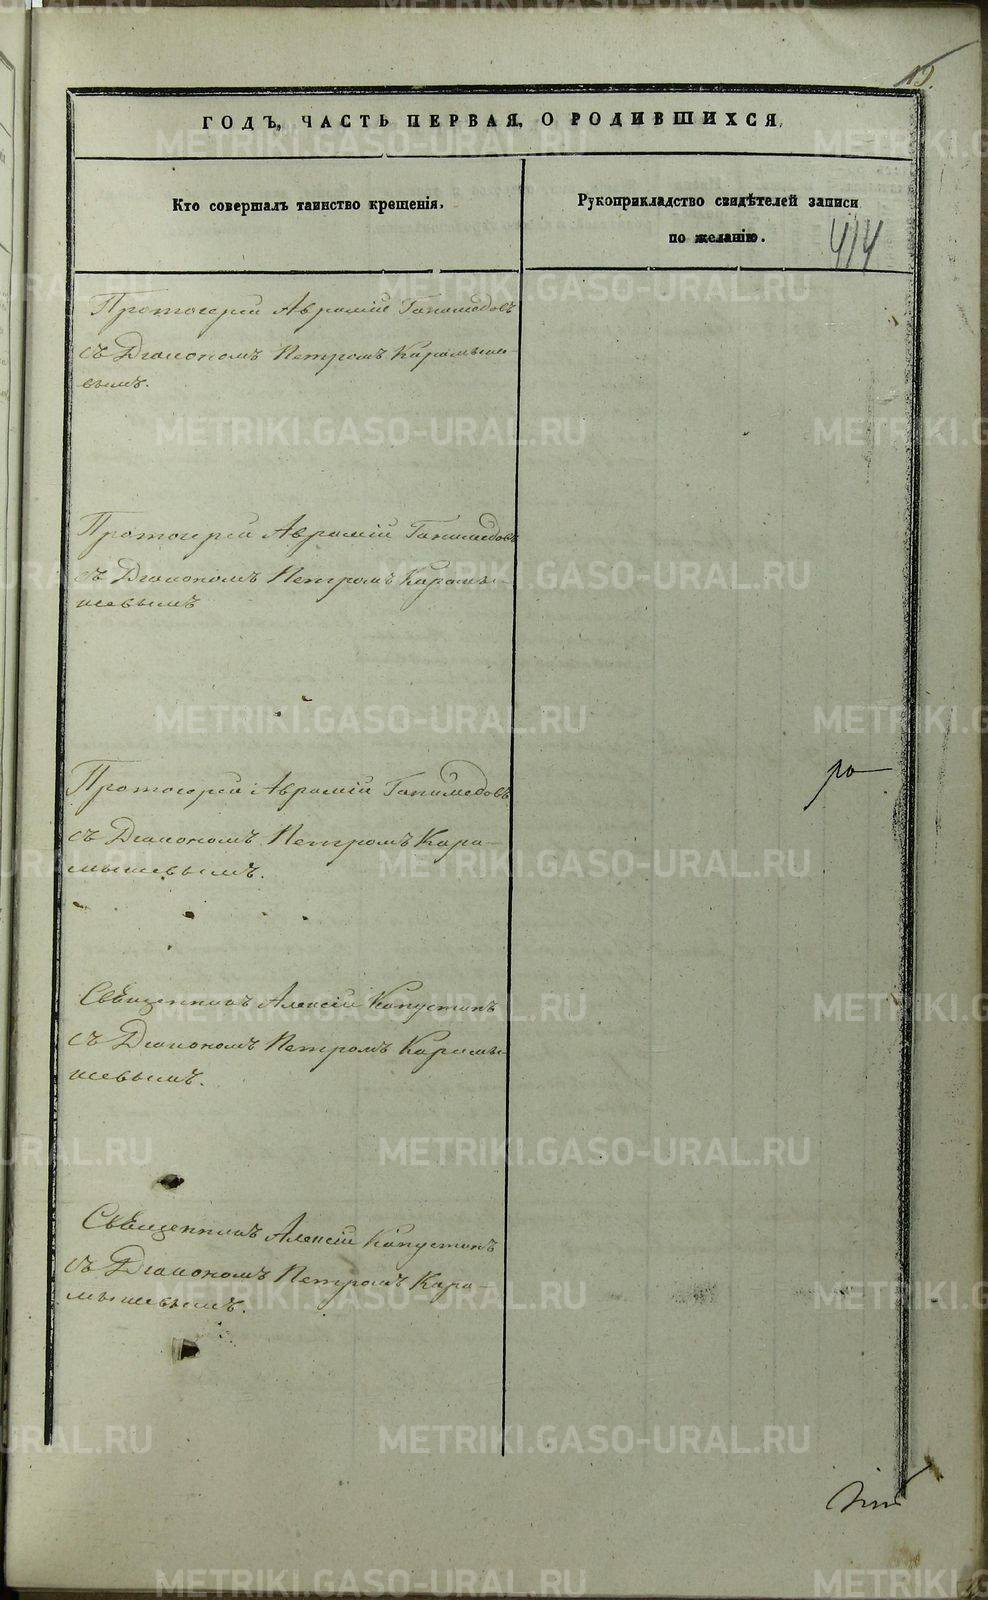 19.
ГОДЪ, ЧАСТЬ ПЕРВАЯ, О РОДИВШИХСЯ,
Кто совершалъ таинство крещенія.
Рукоприкладство свидѣтелей записи
по желанію.
414
Протоіерей Аврамій Ганимедовъ
съ Діакономъ Петромъ Карамыше-
вымъ.
Протоіерей Аврамій Ганимедовъ
съ Діакономъ Петромъ Карамы-
шевымъ
Протоіерей Аврамій Ганимедовъ
съ Діакономъ Петромъ Кара-
мышевымъ.
ро
Священникъ Алексій Капустинъ
съ Діакономъ Петромъ Карамы-
шевымъ.
Священникъ Алексій Капустинъ
съ Діакономъ Петромъ Кара-
мышевымъ.
METRIKI.GASO-URAL.RU